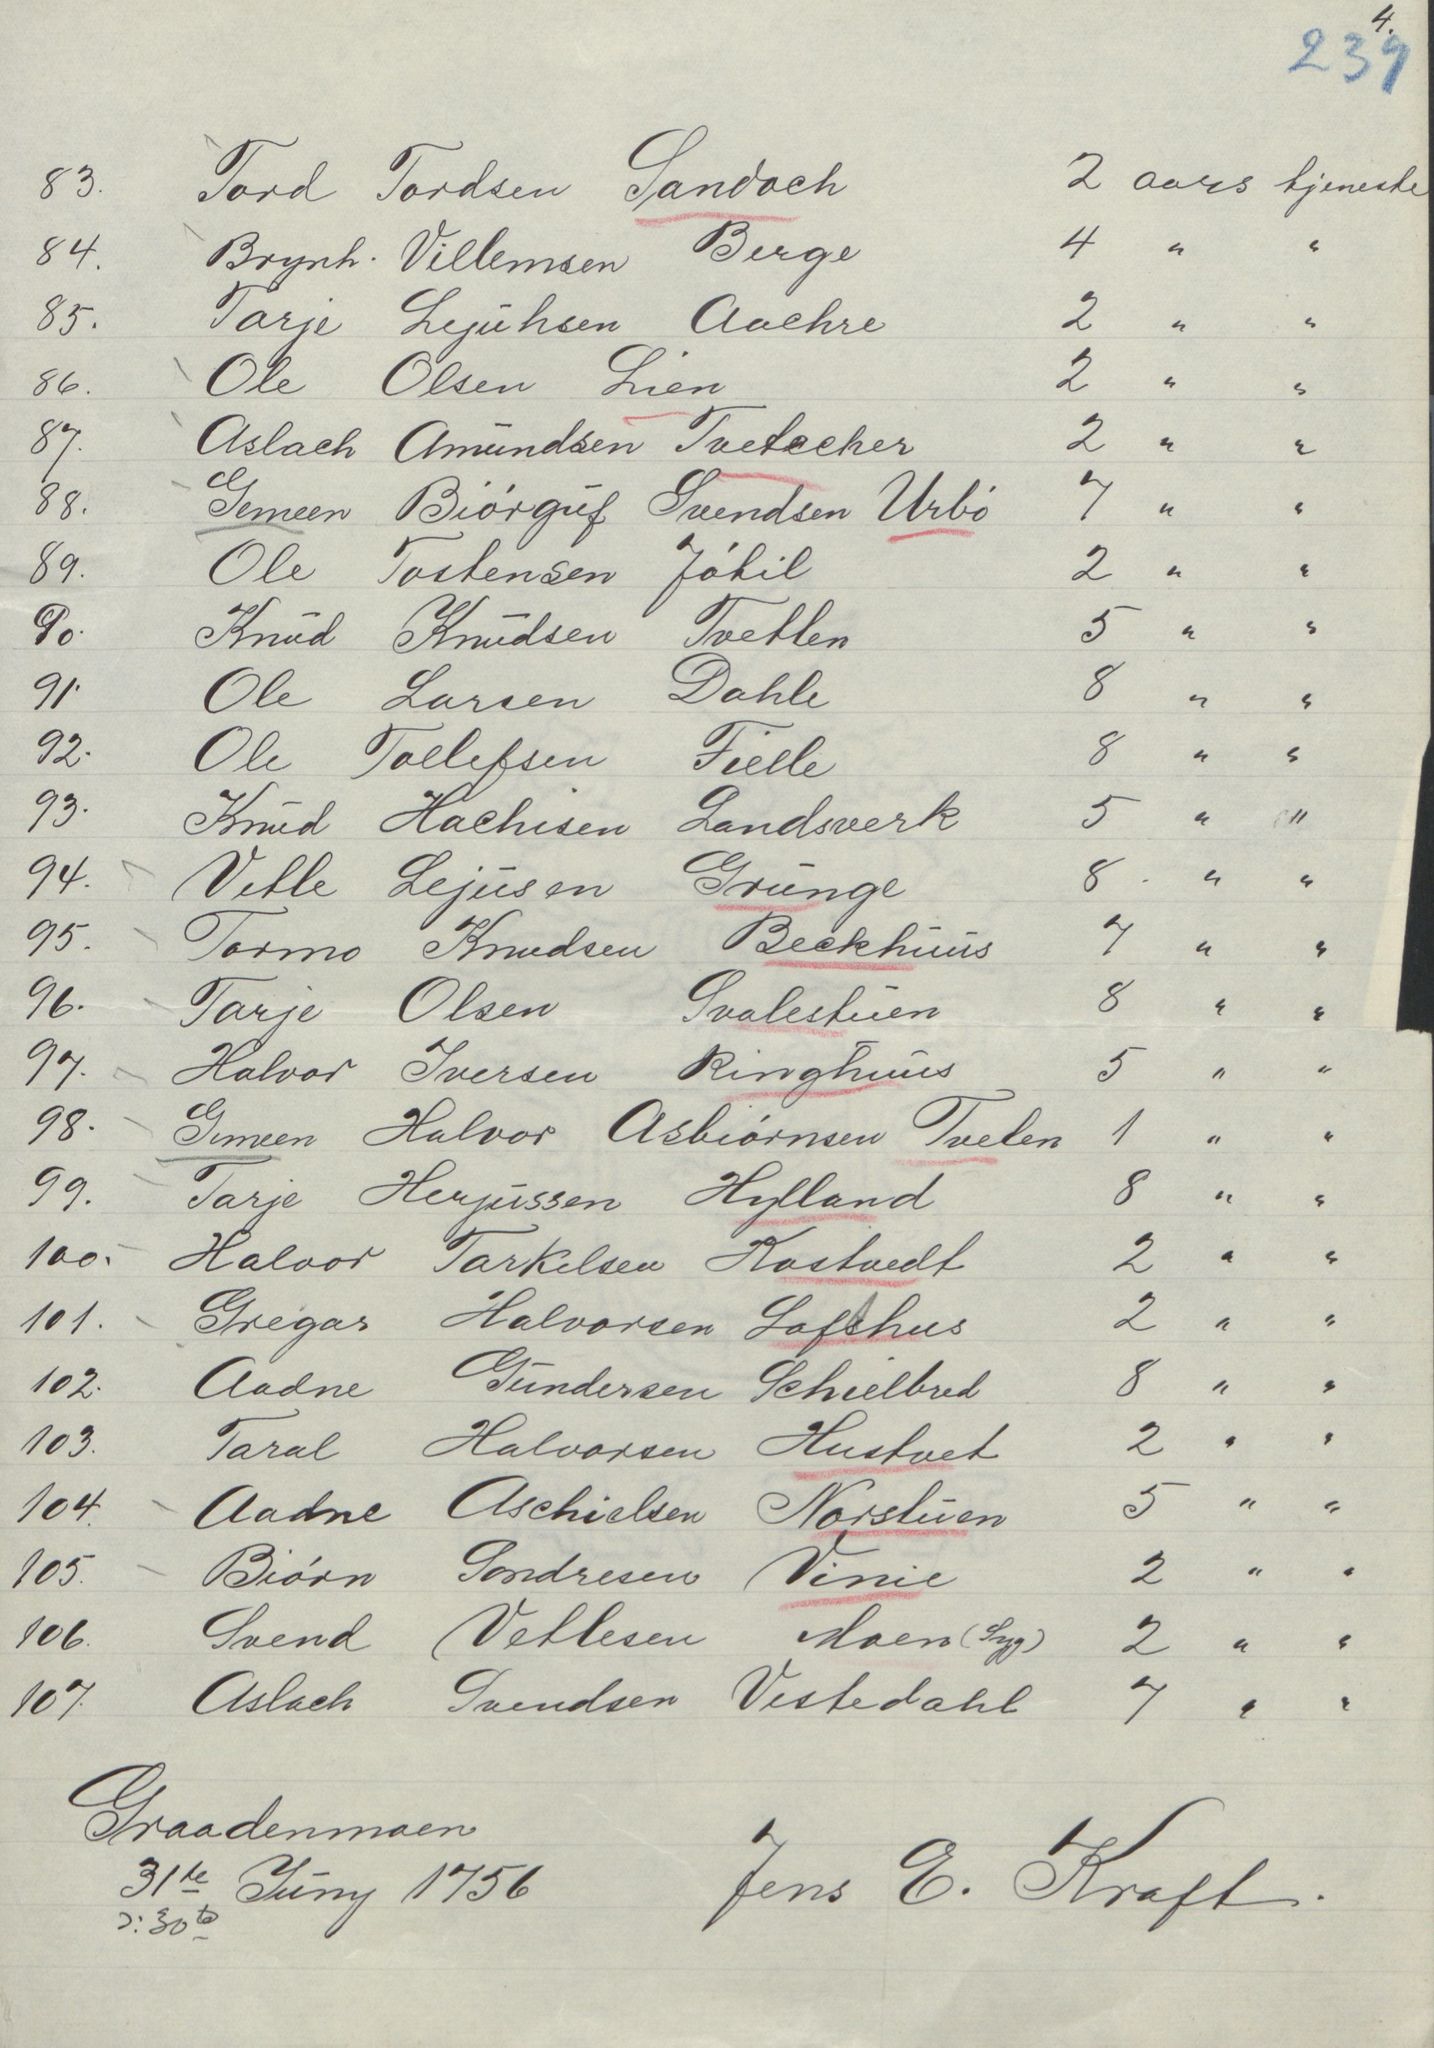 4.
239
83. Tord Tordsen Sandoch 2 aars tjeneste
84. Brynh. Villemsen Berge 4 " "
85. Tarje Lejuhsen Aachre 2 " "
86. Ole Olsen Lien 2 " "
87. Aslach Amundsen Tvetecher 2 " "
88. Gemeen Biörguf Svendsen Urbö 7 " "
89. Ole Tostensen Jökil 2 " "
90. Knud Knudsen Tvetten 5 " "
91. Ole Larsen Dahle 8 " "
92. Ole Tollefsen Fielle 8 " "
93. Knud Hachisen Landsverk 5 " "
94. Vetle Lejusen Grunge 8 " "
95. Tormo Knudsen Beckhuus 7 " "
96. Tarje Olsen Svalestuen 8 " "
97. Halvor Iversen Ringhuus 5 " "
98. Gemeen Halvor Asbiörnsen Tveten 1 " "
99. Tarje Herjussen Hylland 8 " "
100. Halvor Tarkelsen Kostvedt 2 " "
101. Gregar Halvorsen Lofthus 2 " "
102. Aadne Gundersen Schielbred 8 " "
103. Taral Halvorsen Hustvet 2 " "
104. Aadne Aschielsen Norstuen 5 " "
105. Biörn Sondresen Vinie 2 " "
106. Svend Vetlesen Moen (Syg) 2 " "
107. Aslach Svendsen Vestedahl 7 " "
Graadenmoen
31te Juny 1756 Jens E. Kraft.
ɔ: 30te